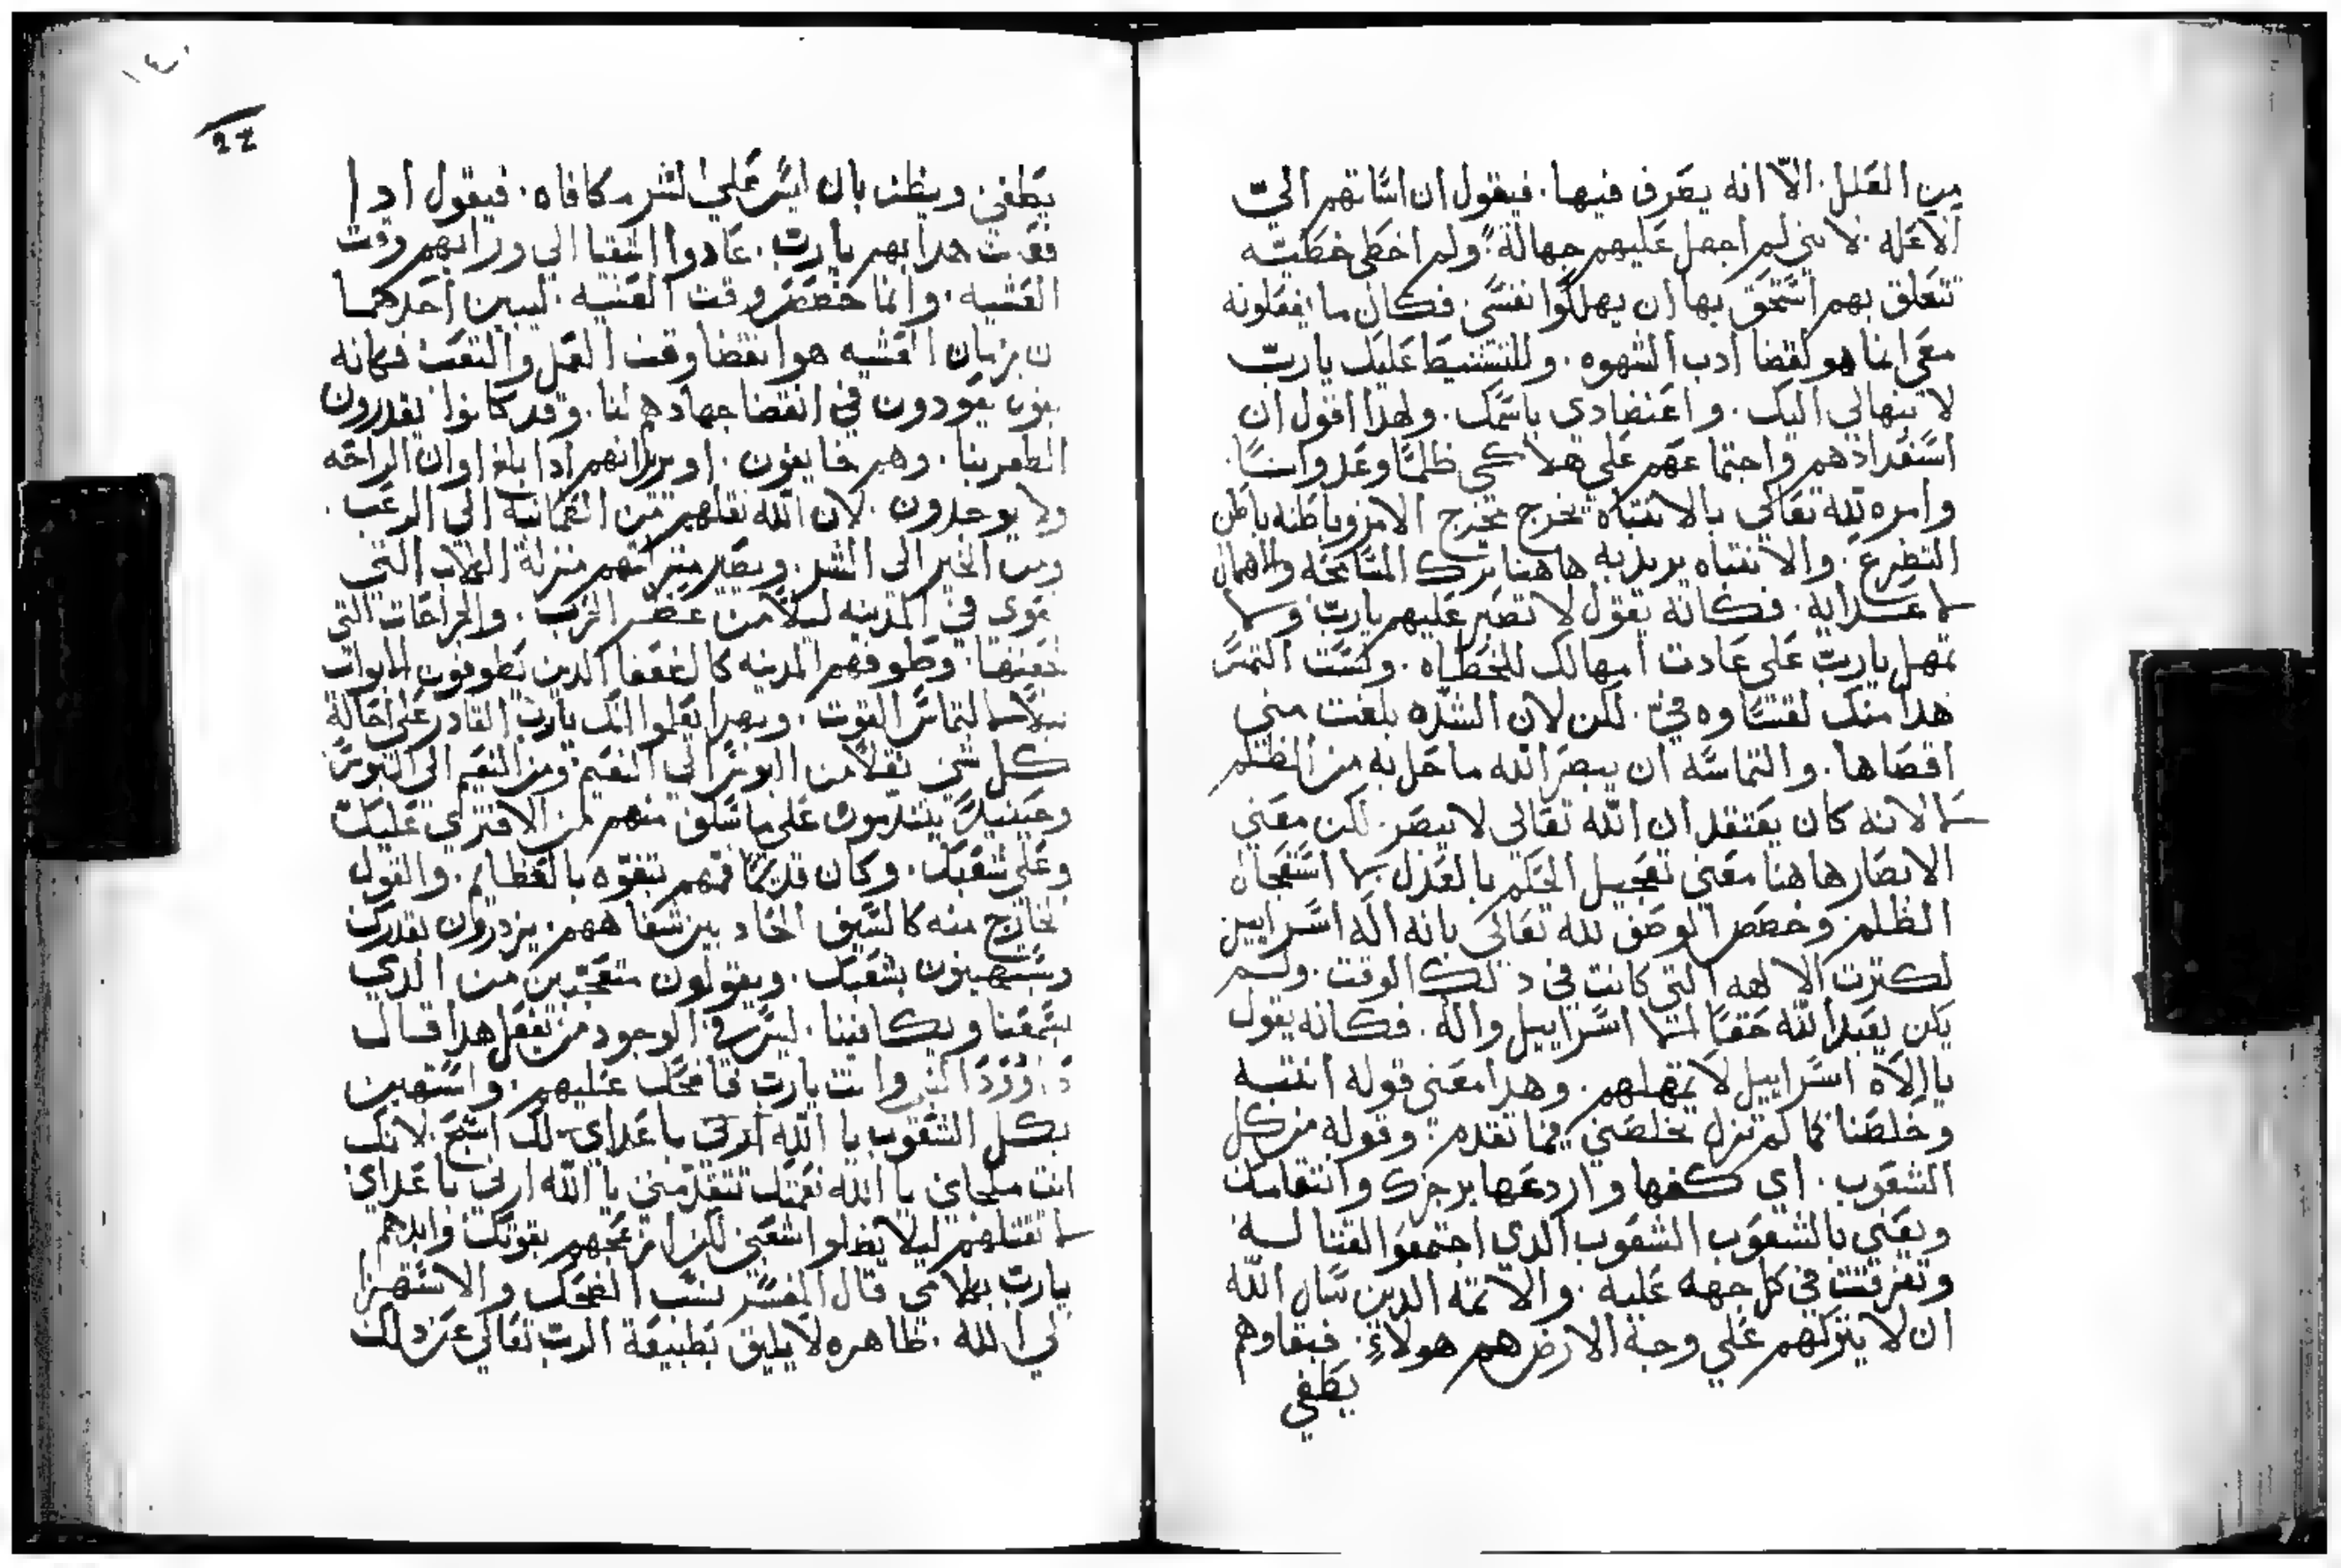 من العلل. الّا انه يصرف فيها. فيقول ان اساتهم اليّ
لا عله لانني لم اجهل عليهم جهالة. ولم اخطى خطيّه
تتعلق بهم استحق بها ان يهلكوا نفسي. فكان ما يفعلونه
معي انما هو لقضا ادب الشهوه. وللتنشيط عليك يا ربّ
لا بتهالي اليك. واعتضادي باسمك. ولهذا اقول ان
استعدادهم واجتماعهم على هلاكي ظلمًا وعدوانًا.
وامره لله تعالي بالانتباه تخرج مخرج الامر وباطنه باطن
التضرع. والانتباه يريد به هاهنا ترك المسامحه والاهمال
لا عدايه. فكانه يقول لا تصبر عليهم يا ربّ ولا
تمهل يا ربّ على عادت امهالك للخطاه. ولست التمس
هدا منك لقساوه فيّ. لكن لان الشدّه بلغت مني
اقصاها. والتماسه ان يبصر الله ما حل به من الظلم
لا لانه كان يعتقد ان الله تعالى لا يبصر. لكن معني
الابصار هاهنا معني تعجيل الحكم بالعدل لما استفحاه
الظلم وخصص الوصف لله تعالى بانه اله اسراييل
لكترت الالهه التي كانت في دلك الوقت. ولم
يكن يعبد الله حقًا الا اسراييل واله. فكانه يقول
يا الاه اسراييل لا تمهلهم. وهدا معني قوله انتبه
وخلصنا كما لم تزل تخلصني فيما تقدم. وقوله من كل
الشعوب. اي كفها واردعها بزجرك وانتقامك
ويعني بالشعوب الشعوب الدي اجتمعوا لقتاله
وتفرقت في كل جهه عليه. والاتمه الدين سال الله
ان لا يتركهم علي وجه الارض هم هولاء. فبقاوهم
يطغي
١٤٠
22
يطغي ويظن بان ليس علي الشر مكافاه. فيقول ادا
فعلت هدا بهم يا رب. عادوا القهقرا الي ورايهم وقت
العشيه. وانما خصص وقت العشيه. ليبين احدهما
ان زمان العشيه هو انقضا وقت العمل والتعب فكانه
يقول يعودون في انقضا جهادهم لنا. وقد كانوا يقدرون
الظفر بنا. وهم خايفون. او يريد انهم ادا بلغ اوان الراحه
ولا يوجدون. لان الله نقلهم من الطمانيه الى الرعب.
ومن الخير الى الشر. ويصير منزلتهم منزلة الكلاب التي
تعوي في المدينه ليلًا من عضّ الكرب. والجراحات التي
وطوفهم المدينه كالضعفا الدين يطوفون الابواب
ليلًا لالتماس القوت. وبهدا يعلموا انك يا رب القادر على احالة
كل شي نقلًا من البوس الي النعيم ومن النعيم الى البوس
وحينيدٍ يتندمون على ما سلف منهم من الافتري عليك
وعلى شعبك. وكان قديمًا فمهم يتفوّه بالعظايم. والقول
الخارج منه كالسيف الحاد بين شفاههم. يزدرون بقدرتك
ويستهينون بشعبك. ويقولون متعجّبين من الدي
يسمعنا ويكافينا. ليس في الوجود من يفعل هدا قال
داوود النبي وانت يا رب تضحك عليهم. واستهين
بكل الشعوب يا الله ارني باعداي لك اسبح لانك
انت ملجاي يا الله نعمتك تتقدمني يا الله ارني باعداي
لا تقتلهم ليلا يضلوا شعبي لكن ازعجهم بقوتك وابدهم
يا ربّ بكلامي قال المفسر نسب الضحك والاستهزا
الي الله. ظاهره لا يليق بطبيعة الربّ تعالى عن دلك